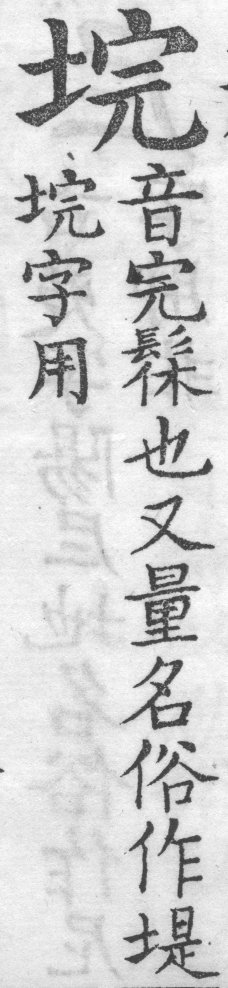 垸
音完髹也又量名俗作堤
垸字用